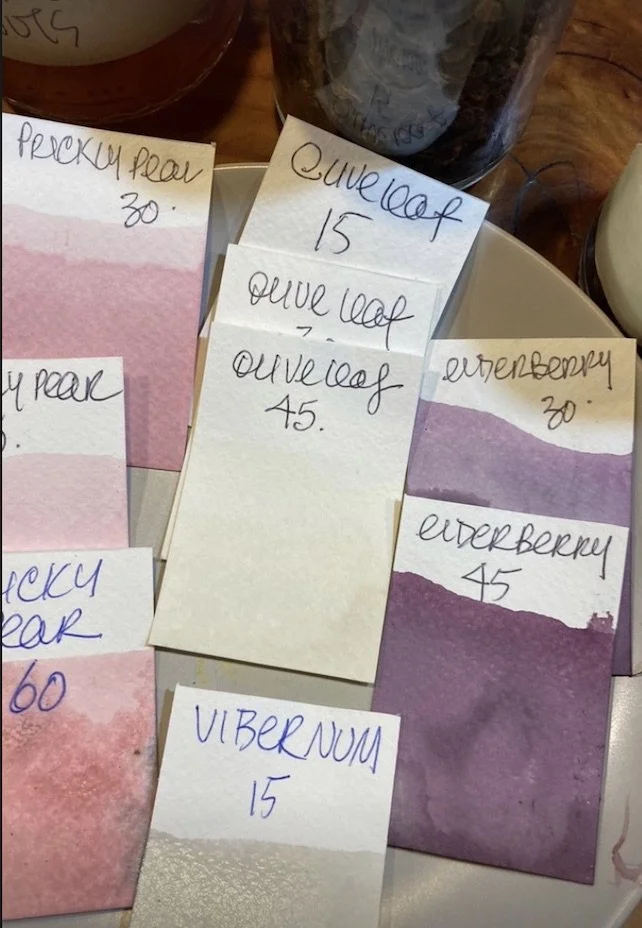 PRICKLY PEAR
30.
Olive leaf
15
OLIVE leaf
OLIVE leaf
45.
elderberry
30.
Y PEAR
elDERBERRY
45
ICKY
EAR
60
VIBERNUM
15